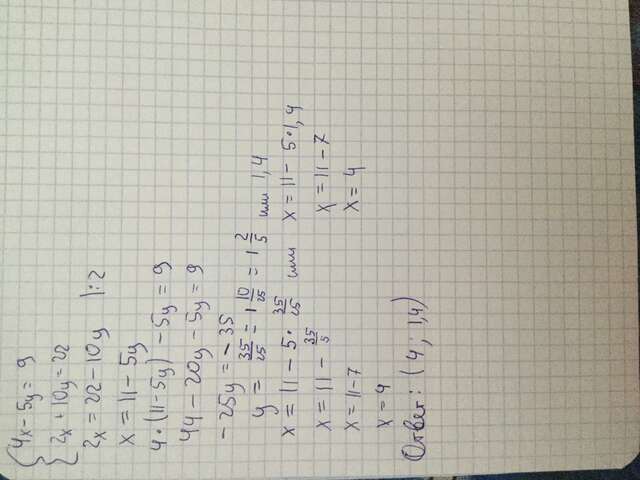 4x-5y=9
2x+10y=22
2x=22-10y |:2
x=11-5y
4•(11-5y)-5y=9
44-20y-5y=9
-25y=-35
y=35/25=1 10/25=1 2/5 или 1,4
x=11-5•35/25 или x=11-5•1,4
x=11-35/5 x=11-7
x=11-7 x=4
x=4
Ответ: (4; 1,4)